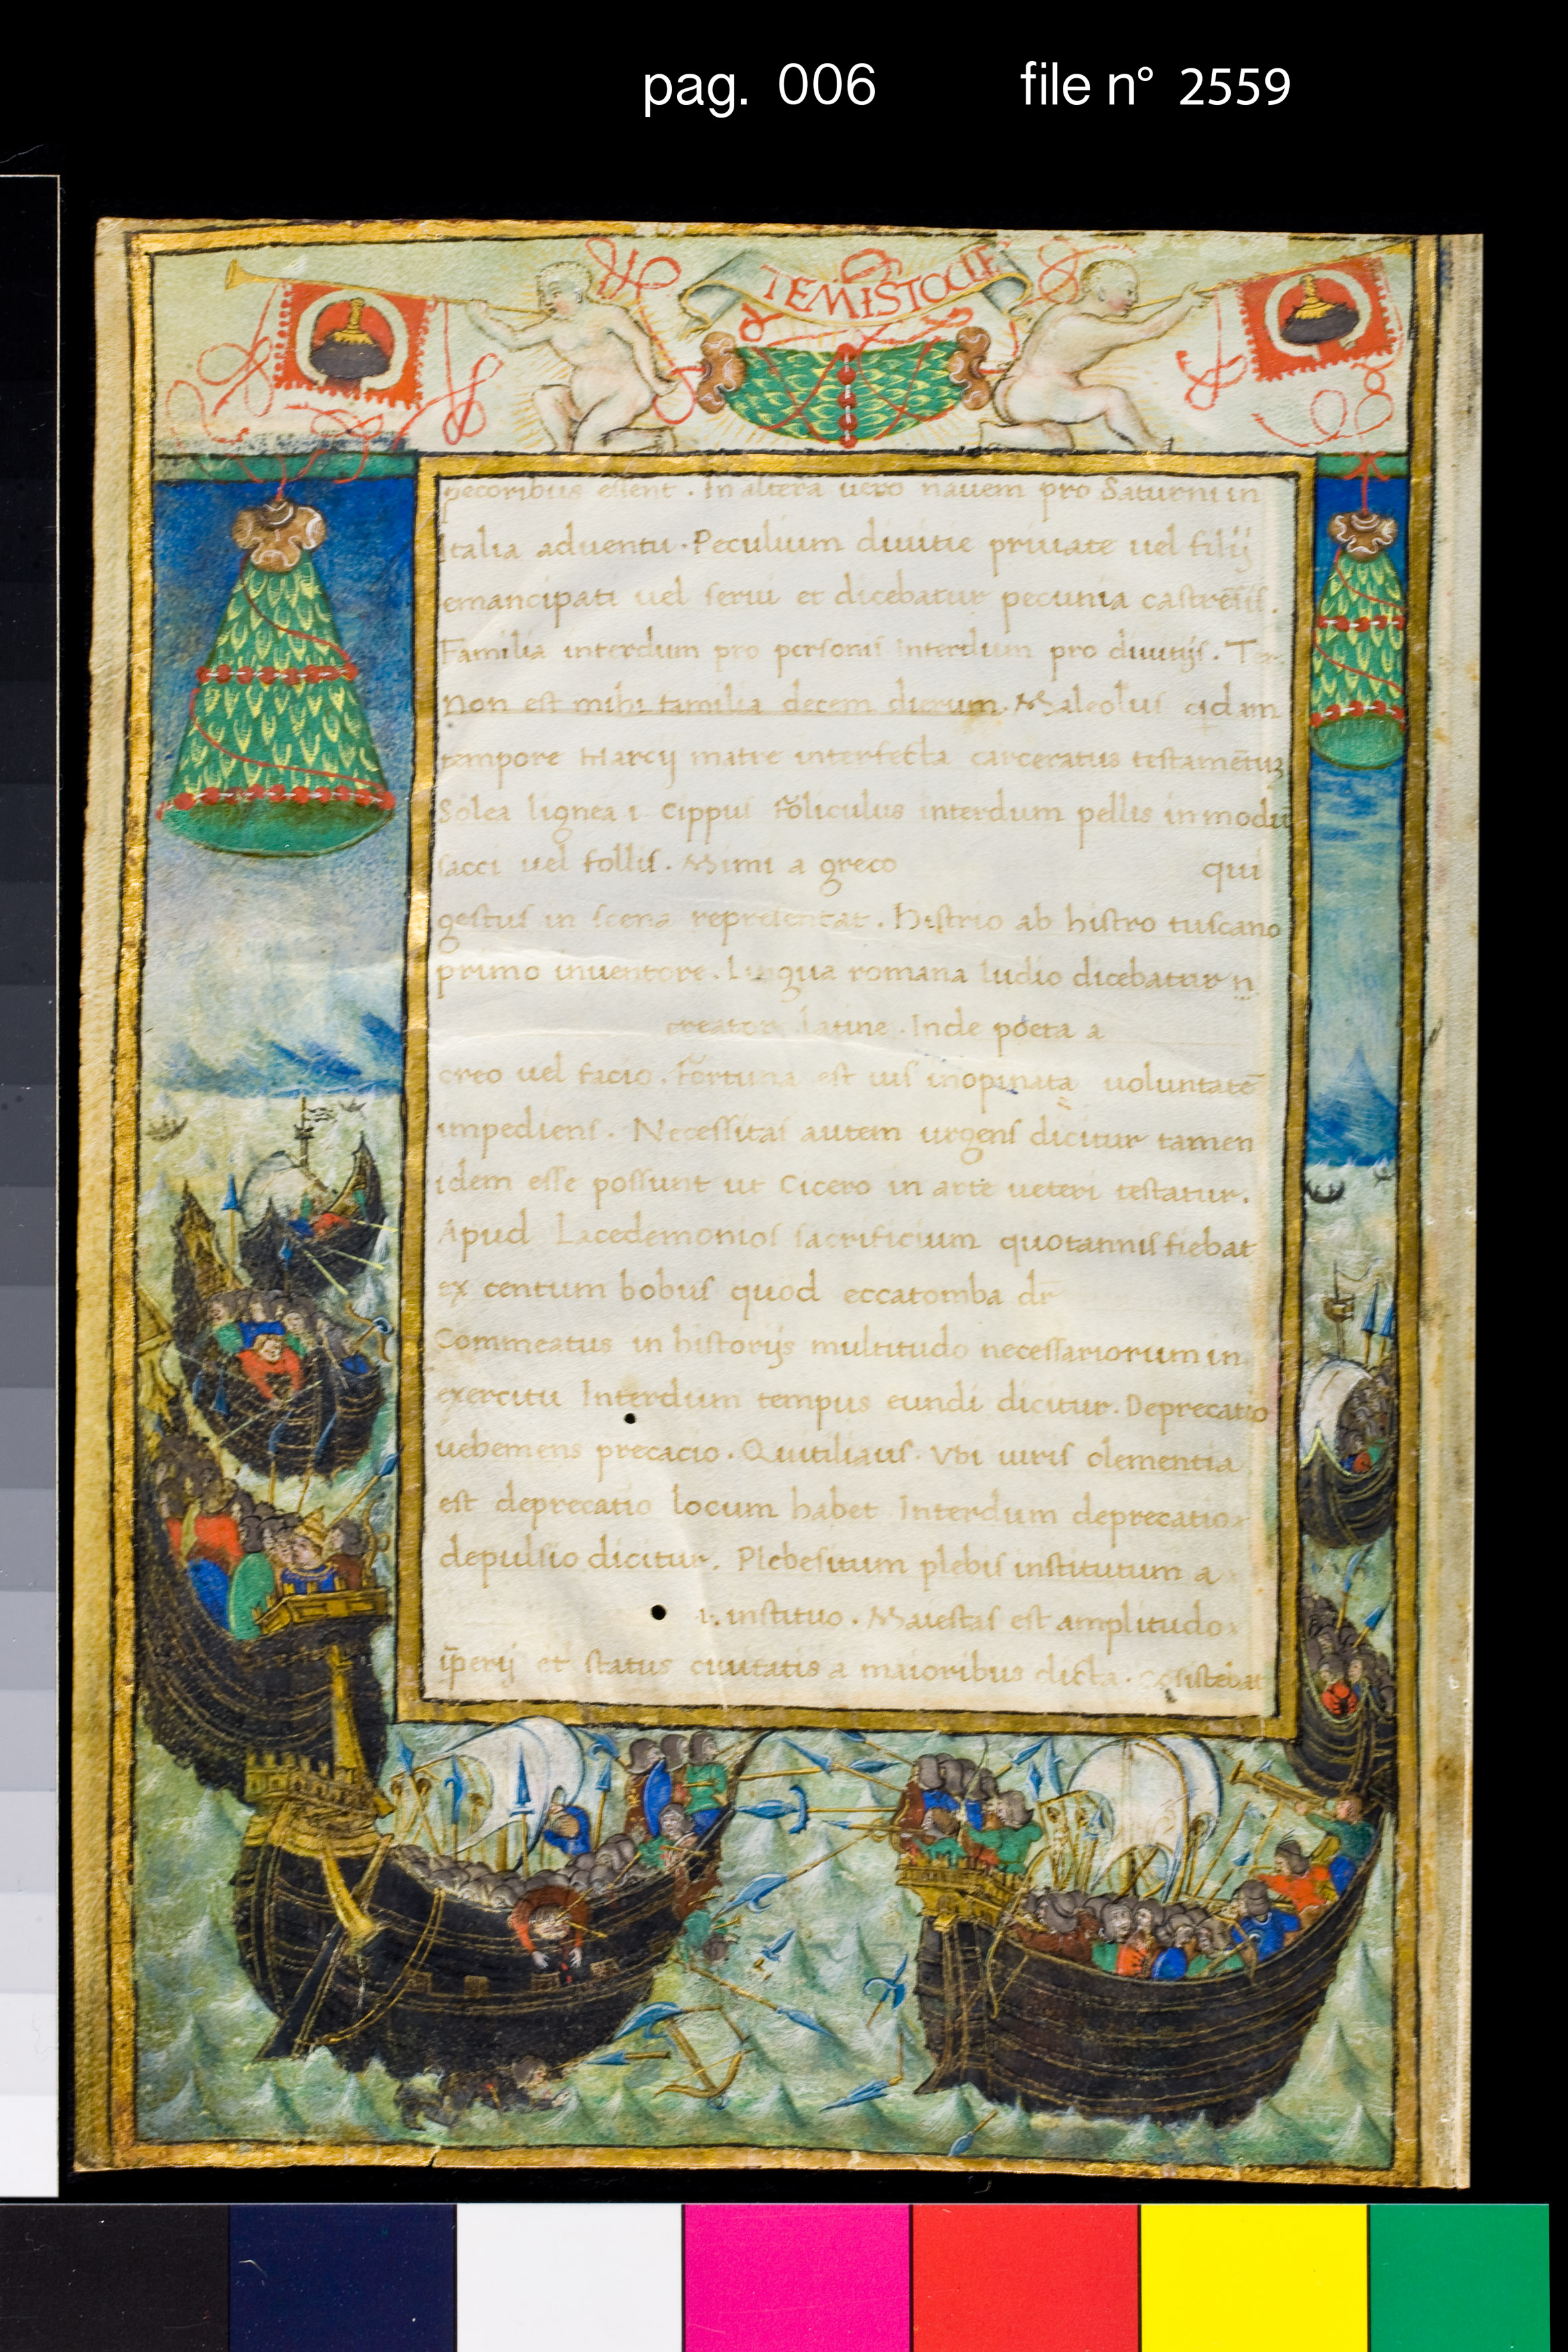 pag. 006 file n° 2559
TEMISTOCLE
pecoribus essent . In altera uero nauem pro Saturni in
Italia aduentu . Peculium diuitie priuate uel filij
emancipati uel serui et dicebatur pecunia castrēsis .
Familia interdum pro personis interdum pro diuitijs .
Non est mihi familia decem dierum . Maleolus qidam
tempore Marcij matre interfecta carceratus testamētuȝ
Solea lignea i cippus Folliculus interdum pellis in modū
sacci uel follis . Mimi a greco qui
gestus in scena representat . Histrio ab histro tuscano
primo inuentore . Lingua romana ludio dicebatur n
creator latine . Inde poeta a
creo uel facio . Fortuna est uis inopinata uoluntatē
impediens . Necessitas autem urgens dicitur tamen
idem esse possunt ut Cicero in arte ueteri testatur .
Apud Lacedemonios sacrificium quotannis fiebat
ex centum bobus quod eccatomba dr̄
Commeatus in historijs multitudo necessariorum in
exercitu Interdum tempus eundi dicitur . Deprecatio
uehemens precacio . Quitilianus . Vbi iuris clementia
est deprecatio locum habet Interdum deprecatio
depulsio dicitur . Plebesitum plebis institutum a
i . instituo . Maiestas est amplitudo
ip̄erij et status ciuitatis a maioribus dicta .